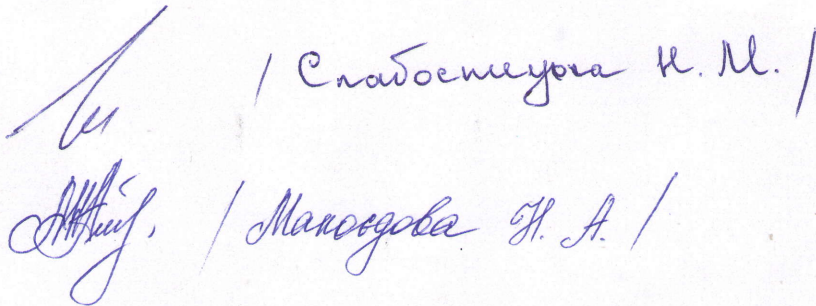 / Слабостицька Н. М. /
/ Макогдова Н. А. /